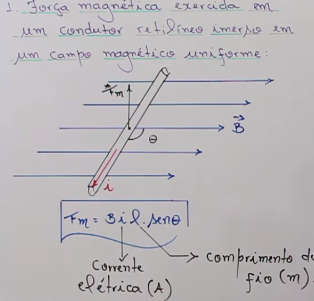 1. Força magnética exercida em
um condutor retilíneo imerso em
um campo magnético uniforme:
Fm
B
θ
i
Fm = Bil.senθ
corrente
elétrica (A)
comprimento do
fio (m).